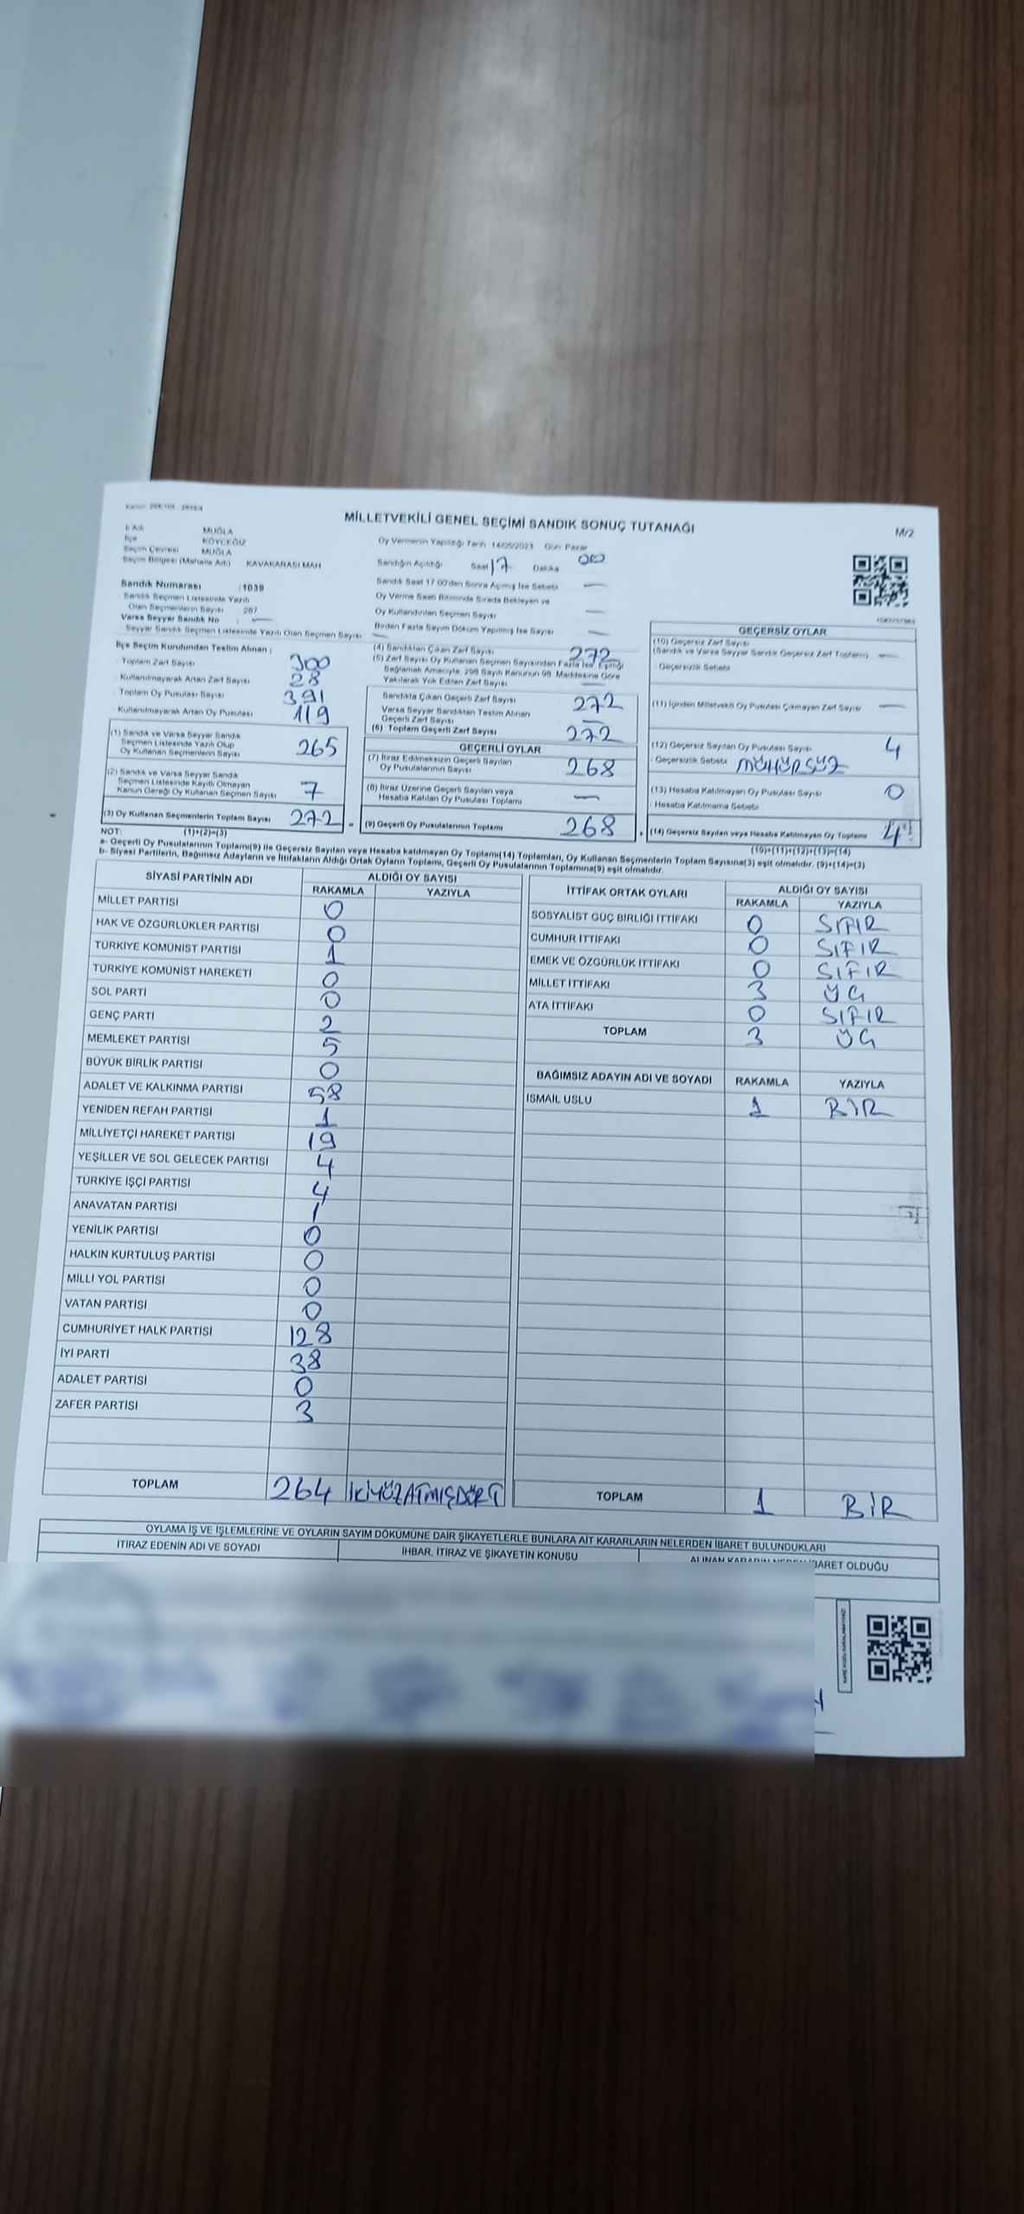 MİLLETVEKİLİ GENEL SEÇİMİ SANDIK SONUÇ TUTANAĞI
M/2
İl Adı MUĞLA
İlçe KÖYCEĞİZ
Seçim Çevresi MUĞLA
Seçim Bölgesi (Mahalle Adı) KAVAKARASI MAH
Oy Vermenin Yapıldığı Tarih 14/05/2023 Gün Pazar
Sandığın Açıldığı Saat 17 Dakika 00
Sandık Numarası : 1039
Sandık Seçmen Listesinde Yazılı
Olan Seçmenlerin Sayısı 287
Varsa Seyyar Sandık No : —
Seyyar Sandık Seçmen Listesinde Yazılı Olan Seçmen Sayısı —
Sandık Saat 17 00'den Sonra Açılmış İse Sebebi —
Oy Verme Saati Bitiminde Sırada Bekleyen ve
Oy Kullandırılan Seçmen Sayısı —
Birden Fazla Sayım Döküm Yapılmış İse Sayısı —
İlçe Seçim Kurulundan Teslim Alınan ;
Toplam Zarf Sayısı 300
Kullanılmayarak Artan Zarf Sayısı 28
Toplam Oy Pusulası Sayısı 391
Kullanılmayarak Artan Oy Pusulası 119
(1) Sandık ve Varsa Seyyar Sandık
Seçmen Listesinde Yazılı Olup
Oy Kullanan Seçmenlerin Sayısı 265
(2) Sandık ve Varsa Seyyar Sandık
Seçmen Listesinde Kayıtlı Olmayan
Kanun Gereği Oy Kullanan Seçmen Sayısı 7
(3) Oy Kullanan Seçmenlerin Toplam Sayısı 272 =
(4) Sandıktan Çıkan Zarf Sayısı 272
(5) Zarf Sayısı Oy Kullanan Seçmen Sayısından Fazla İse, Eşitliği
Sağlamak Amacıyla, 298 Sayılı Kanunun 98. Maddesine Göre
Yakılarak Yok Edilen Zarf Sayısı —
Sandıkta Çıkan Geçerli Zarf Sayısı 272
Varsa Seyyar Sandıktan Teslim Alınan
Geçerli Zarf Sayısı —
(6) Toplam Geçerli Zarf Sayısı 272
GEÇERLİ OYLAR
(7) İtiraz Edilmeksizin Geçerli Sayılan
Oy Pusulalarının Sayısı 268
(8) İtiraz Üzerine Geçerli Sayılan veya
Hesaba Katılan Oy Pusulası Toplamı —
(9) Geçerli Oy Pusulalarının Toplamı 268 +
GEÇERSİZ OYLAR
(10) Geçersiz Zarf Sayısı
(Sandık ve Varsa Seyyar Sandık Geçersiz Zarf Toplamı) —
Geçersizlik Sebebi
(11) İçinden Milletvekili Oy Pusulası Çıkmayan Zarf Sayısı —
(12) Geçersiz Sayılan Oy Pusulası Sayısı 4
Geçersizlik Sebebi MÜHÜRSÜZ
(13) Hesaba Katılmayan Oy Pusulası Sayısı 0
Hesaba Katılmama Sebebi
(14) Geçersiz Sayılan veya Hesaba Katılmayan Oy Toplamı 4
NOT: (1)+(2)=(3)
(10)+(11)+(12)+(13)=(14)
a- Geçerli Oy Pusulalarının Toplamı(9) ile Geçersiz Sayılan veya Hesaba katılmayan Oy Toplamı(14) Toplamları, Oy Kullanan Seçmenlerin Toplam Sayısına(3) eşit olmalıdır. (9)+(14)=(3)
b- Siyasi Partilerin, Bağımsız Adayların ve İttifakların Aldığı Ortak Oyların Toplamı, Geçerli Oy Pusulalarının Toplamına(9) eşit olmalıdır.
SİYASİ PARTİNİN ADI ALDIĞI OY SAYISI
RAKAMLA YAZIYLA
MİLLET PARTİSİ 0
HAK VE ÖZGÜRLÜKLER PARTİSİ 0
TÜRKİYE KOMÜNİST PARTİSİ 1
TÜRKİYE KOMÜNİST HAREKETİ 0
SOL PARTİ 0
GENÇ PARTİ 2
MEMLEKET PARTİSİ 5
BÜYÜK BİRLİK PARTİSİ 0
ADALET VE KALKINMA PARTİSİ 58
YENİDEN REFAH PARTİSİ 1
MİLLİYETÇİ HAREKET PARTİSİ 19
YEŞİLLER VE SOL GELECEK PARTİSİ 4
TÜRKİYE İŞÇİ PARTİSİ 4
ANAVATAN PARTİSİ 1
YENİLİK PARTİSİ 0
HALKIN KURTULUŞ PARTİSİ 0
MİLLİ YOL PARTİSİ 0
VATAN PARTİSİ 0
CUMHURİYET HALK PARTİSİ 128
İYİ PARTİ 38
ADALET PARTİSİ 0
ZAFER PARTİSİ 3
TOPLAM 264 İKİYÜZATMIŞDÖRT
İTTİFAK ORTAK OYLARI ALDIĞI OY SAYISI
RAKAMLA YAZIYLA
SOSYALİST GÜÇ BİRLİĞİ İTTİFAKI 0 SIFIR
CUMHUR İTTİFAKI 0 SIFIR
EMEK VE ÖZGÜRLÜK İTTİFAKI 0 SIFIR
MİLLET İTTİFAKI 3 ÜÇ
ATA İTTİFAKI 0 SIFIR
TOPLAM 3 ÜÇ
BAĞIMSIZ ADAYIN ADI VE SOYADI RAKAMLA YAZIYLA
İSMAİL USLU 1 BİR
TOPLAM 1 BİR
OYLAMA İŞ VE İŞLEMLERİNE VE OYLARIN SAYIM DÖKÜMÜNE DAİR ŞİKAYETLERLE BUNLARA AİT KARARLARIN NELERDEN İBARET BULUNDUKLARI
İTİRAZ EDENİN ADI VE SOYADI İHBAR, İTİRAZ VE ŞİKAYETİN KONUSU ALINAN KARARIN NEDEN İBARET OLDUĞU